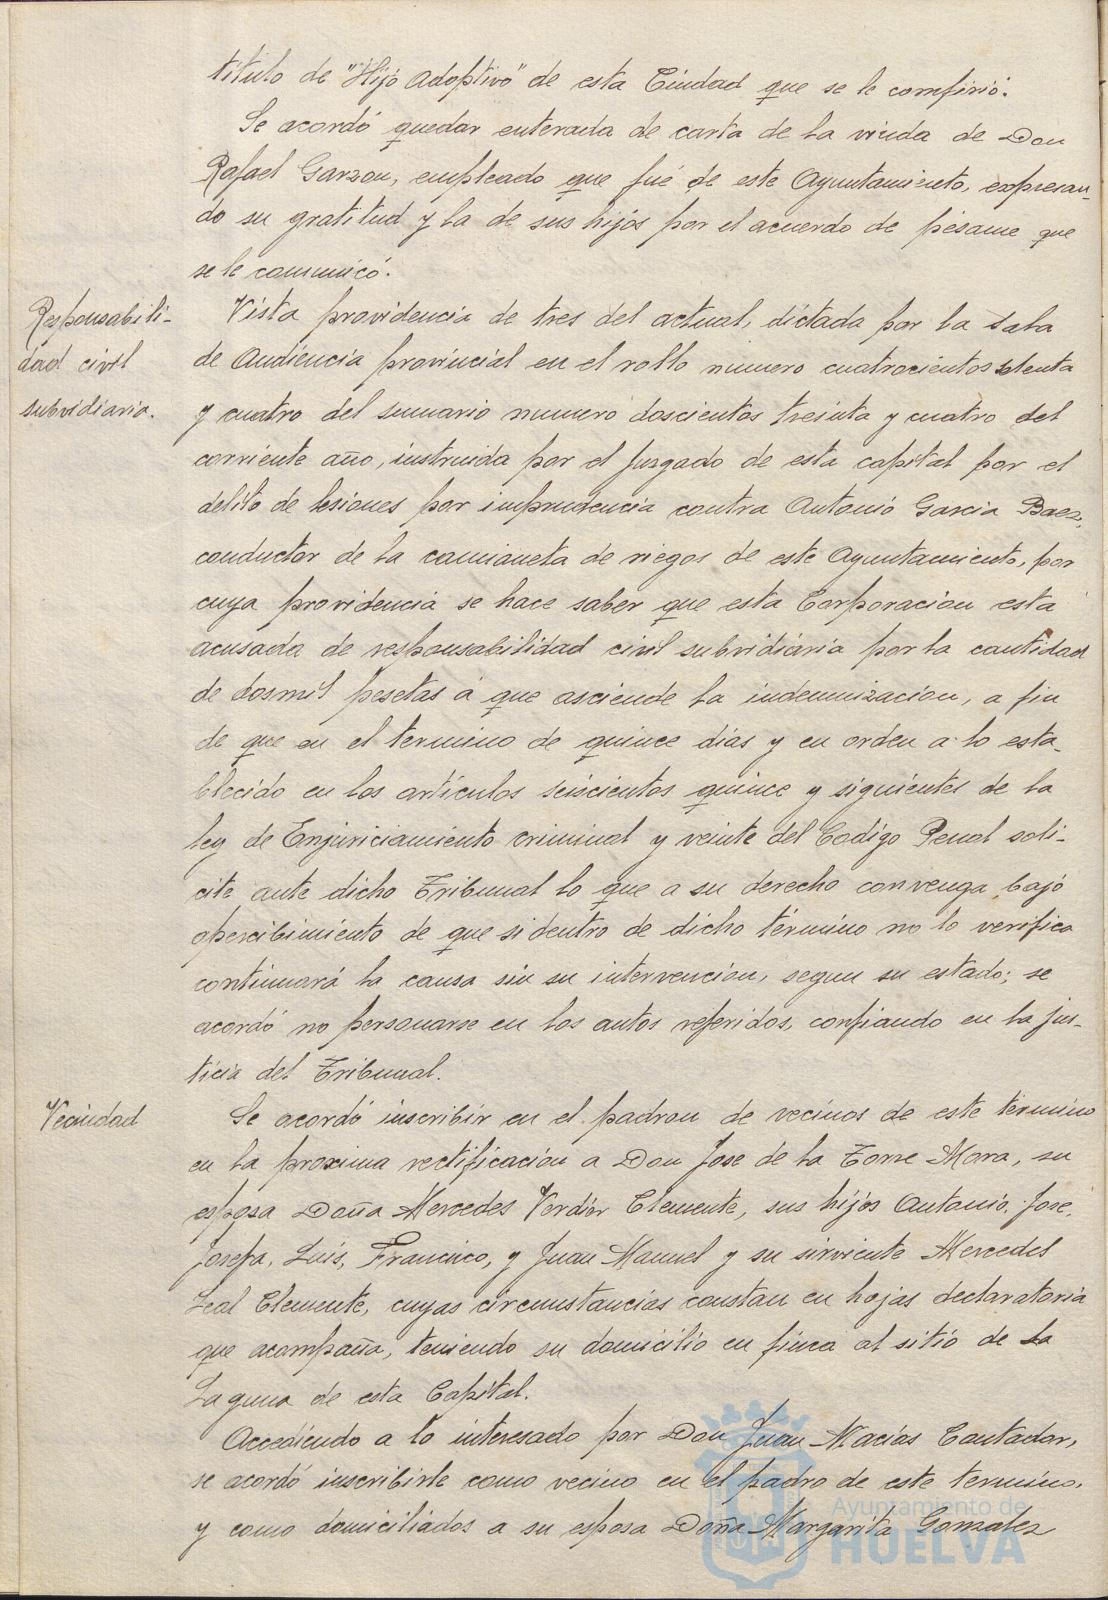 titulo de "Hijo Adoptivo" de esta Ciudad que se le confirió.
Se acordó quedar enterada de carta de la viuda de Don
Rafael Garzon, empleado que fué de este Ayuntamiento, expresan-
do su gratitud y la de sus hijos por el acuerdo de pésame que
se le comunicó.
Responsabili-
dad civil
subsidiaria.
Vista providencia de tres del actual, dictada por la Sala
de Audiencia provincial en el rollo numero cuatrocientos setenta
y cuatro del sumario numero doscientos treinta y cuatro del
corriente año, instruida por el Juzgado de esta capital por el
delito de lesiones por imprudencia contra Antonio Garcia Baez,
conductor de la camioneta de riegos de este Ayuntamiento, por
cuya providencia se hace saber que esta Corporacion está
acusada de responsabilidad civil subsidiaria por la cantidad
de dosmil pesetas á que asciende la indemnizacion, a fin
de que en el termino de quince dias y en orden a lo esta-
blecido en los articulos seiscientos quince y siguientes de la
ley de Enjuriciamiento criminal y veinte del Codigo Penal soli-
cite ante dicho Tribunal lo que a su derecho convenga bajo
apercibimiento de que si dentro de dicho término no lo verifica
continuará la causa sin su intervencion, segun su estado; se
acordó no personarse en los autos referidos, confiando en la jus-
ticia del Tribunal.
Vecindad
Se acordó inscribir en el padron de vecinos de este término
en la proxima rectificación a Don Jose de la Torre Mora, su
esposa Doña Mercedes Verdier Clemente, sus hijos Antonio, Jose,
Josefa, Luis, Francisco, y Juan Manuel y su sirviente Mercedes
Leal Clemente, cuyas circunstancias constan en hojas declaratoria
que acompaña, teniendo su domicilio en finca al sitio de la
Laguna de esta Capital.
Accediendo a lo interesado por Don Juan Macias Contador,
se acordó inscribirle como vecino en el padro de este termino,
y como domiciliados a su esposa Doña Margarita Gonzalez
Ayuntamiento de
HUELVA